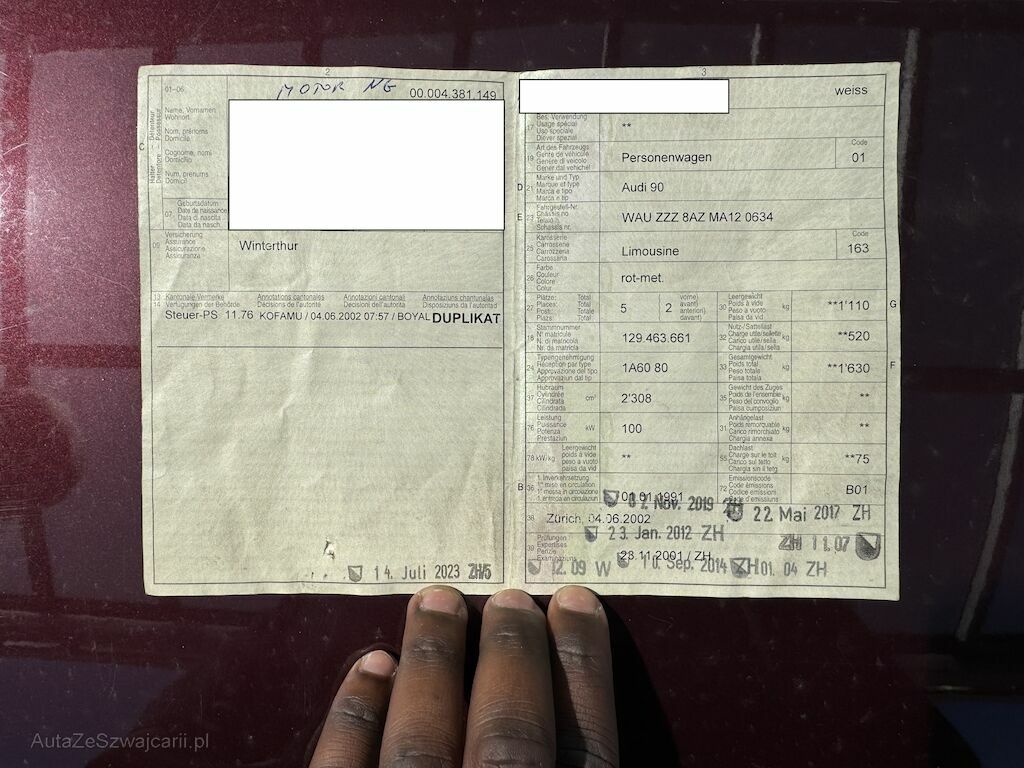 2
MOTOR NG
00.004.381.149
01-06
Name, Vornamen
Wohnort
Nom, prénoms
Domicile
Cognome, nomi
Domicilio
Num, prenums
Domicil
C
Geburtsdatum
Date de naissance
Data di nascita
Data da nasch.
07
Versicherung
Assurance
Assicurazione
Assicuranza
09
Winterthur
13
14
Kantonale Vermerke
Verfügungen der Behörde
Annotations cantonales
Décisions de l'autorité
Annotazioni cantonali
Decisioni dell'autorità
Annotaziuns chantunalas
Disposiziuns da l'autoritad
Steuer-PS 11.76 KOFAMU / 04.06.2002 07:57 / BOYAL DUPLIKAT
14. Juli 2023 ZH/5
3
weiss
17
Bes. Verwendung
Usage spécial
Uso speciale
Diever spezial
**
19
Art des Fahrzeugs
Genre de véhicule
Genere di veicolo
Gener dal vehichel
Personenwagen
Code
01
D
21
Marke und Typ
Marque et type
Marca e tipo
Marca e tip
Audi 90
E
23
Fahrgestell-Nr.
Châssis no
Telaio n.
Schassis nr.
WAU ZZZ 8AZ MA12 0634
25
Karosserie
Carrosserie
Carrozzeria
Carossaria
Limousine
Code
163
26
Farbe
Couleur
Colore
Colur
rot-met.
27
Plätze: Total
Places: Total
Posti: Totale
Plazs: Total
5
2
vorne)
avant)
anteriori)
davant)
30
Leergewicht
Poids à vide
Peso a vuoto
Paisa da vid
kg
**1'110
G
18
Stammnummer
N° matricule
N. di matricola
Nr. da matricla
129.463.661
32
Nutz-/Sattellast
Charge utile/sellette
Carico utile/sella
Chargia utila/sella
kg
**520
24
Typengenehmigung
Réception par type
Approvazione del tipo
Approvaziun dal tip
1A60 80
33
Gesamtgewicht
Poids total
Peso totale
Paisa totala
kg
**1'630
F
37
Hubraum
Cylindrée
Cilindrata
Cilindrada
cm³
2'308
35
Gewicht des Zuges
Poids de l'ensemble
Peso del convoglio
Paisa cumposiziun
kg
**
76
Leistung
Puissance
Potenza
Prestaziun
kW
100
31
Anhängelast
Poids remorquable
Carico rimorchiato
Chargia annexa
kg
**
78 kW/kg
Leergewicht
poids à vide
peso a vuoto
paisa da vid
**
55
Dachlast
Charge sur le toit
Carico sul tetto
Chargia sin il tetg
kg
**75
B
36
1. Inverkehrsetzung
1re mise en circulation
1. messa in circolazione
1. entrada en circulaziun
01.01.1991
72
Emissionscode
Code émissions
Codice emissioni
Code d'emissiuns
B01
Nov. 2019 ZH
22 Mai 2017 ZH
38
Zürich, 04.06.2002
23. Jan. 2012 ZH
ZH 11.07
39
Prüfungen
Expertises
Perizie
Examinaziuns
23.11.2001 / ZH
12.09 W
10. Sep. 2014
ZH 01.04 ZH
AutaZeSzwajcarii.pl